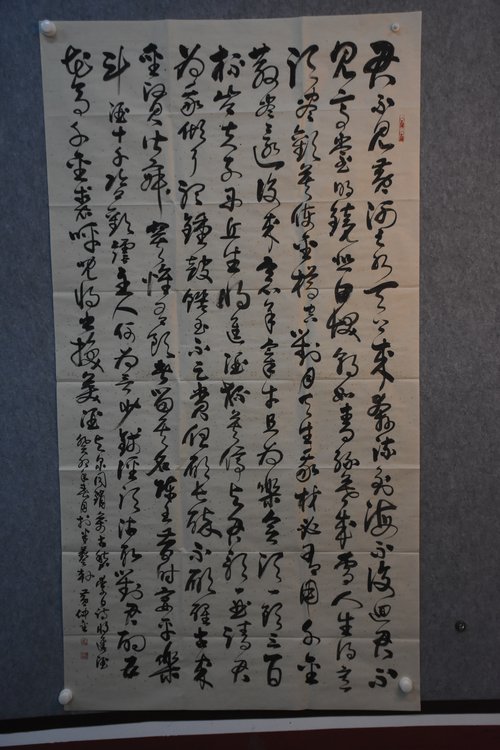 君不見黃河之水天上來奔流到海不復迴君不
見高堂明鏡悲白髮朝如青絲暮成雪人生得意
須盡歡莫使金樽空對月天生我材必有用千金
散盡還復來烹羊宰牛且為樂會須一飲三百
杯岑夫子丹丘生將進酒杯莫停與君歌一曲請君
為我傾耳聽鐘鼓饌玉不足貴但願長醉不願醒古來
聖賢皆寂寞惟有飲者留其名陳王昔時宴平樂
斗酒十千恣歡謔主人何為言少錢徑須沽取對君酌五
花馬千金裘呼兒將出換美酒與爾同銷萬古愁李白詩將進酒
癸卯年春月於